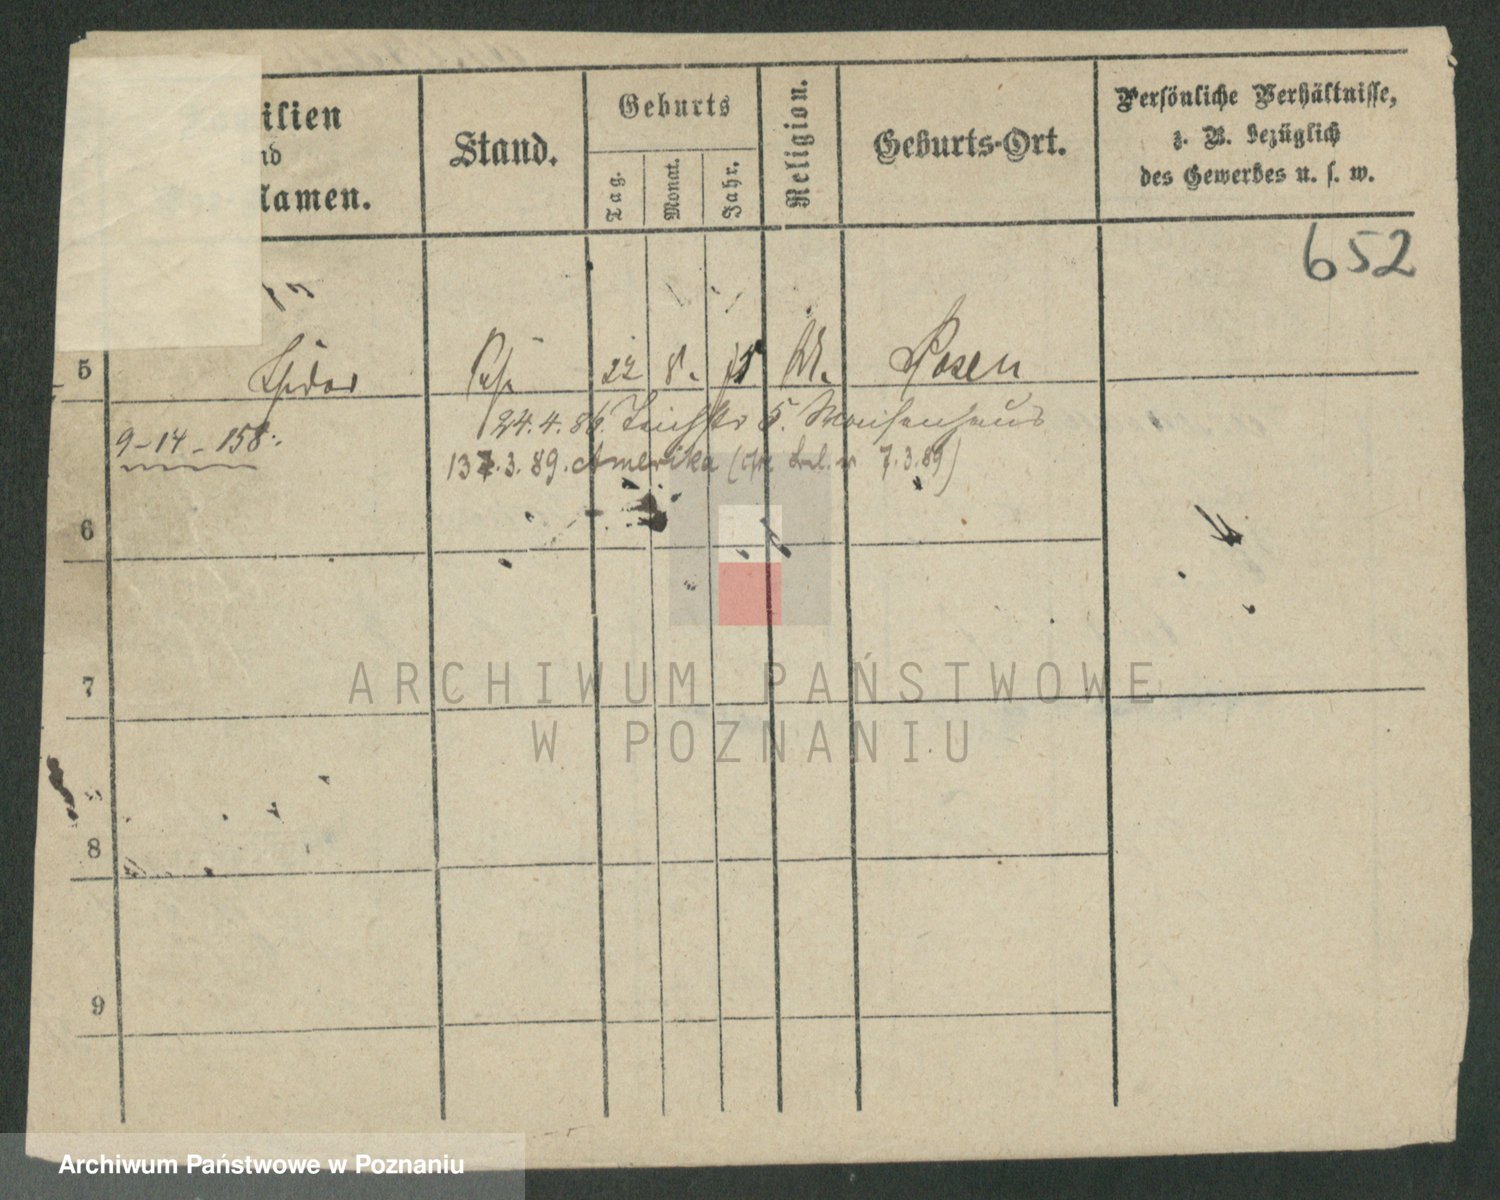 ilien
nd
Namen.
Stand.
Geburts
Tag.
Monat.
Jahr.
Religion.
Geburts-Ort.
Persönliche Verhältnisse,
z. B. bezüglich
des Gewerbes u. s. w.
652
5 Isidor 22 8. Posen
24.4.86. 5. Waisenhaus
9-14-158.
13.3.89. Amerika 7.3.89)
6
7
8
9
ARCHIWUM PAŃSTWOWE
W POZNANIU
Archiwum Państwowe w Poznaniu